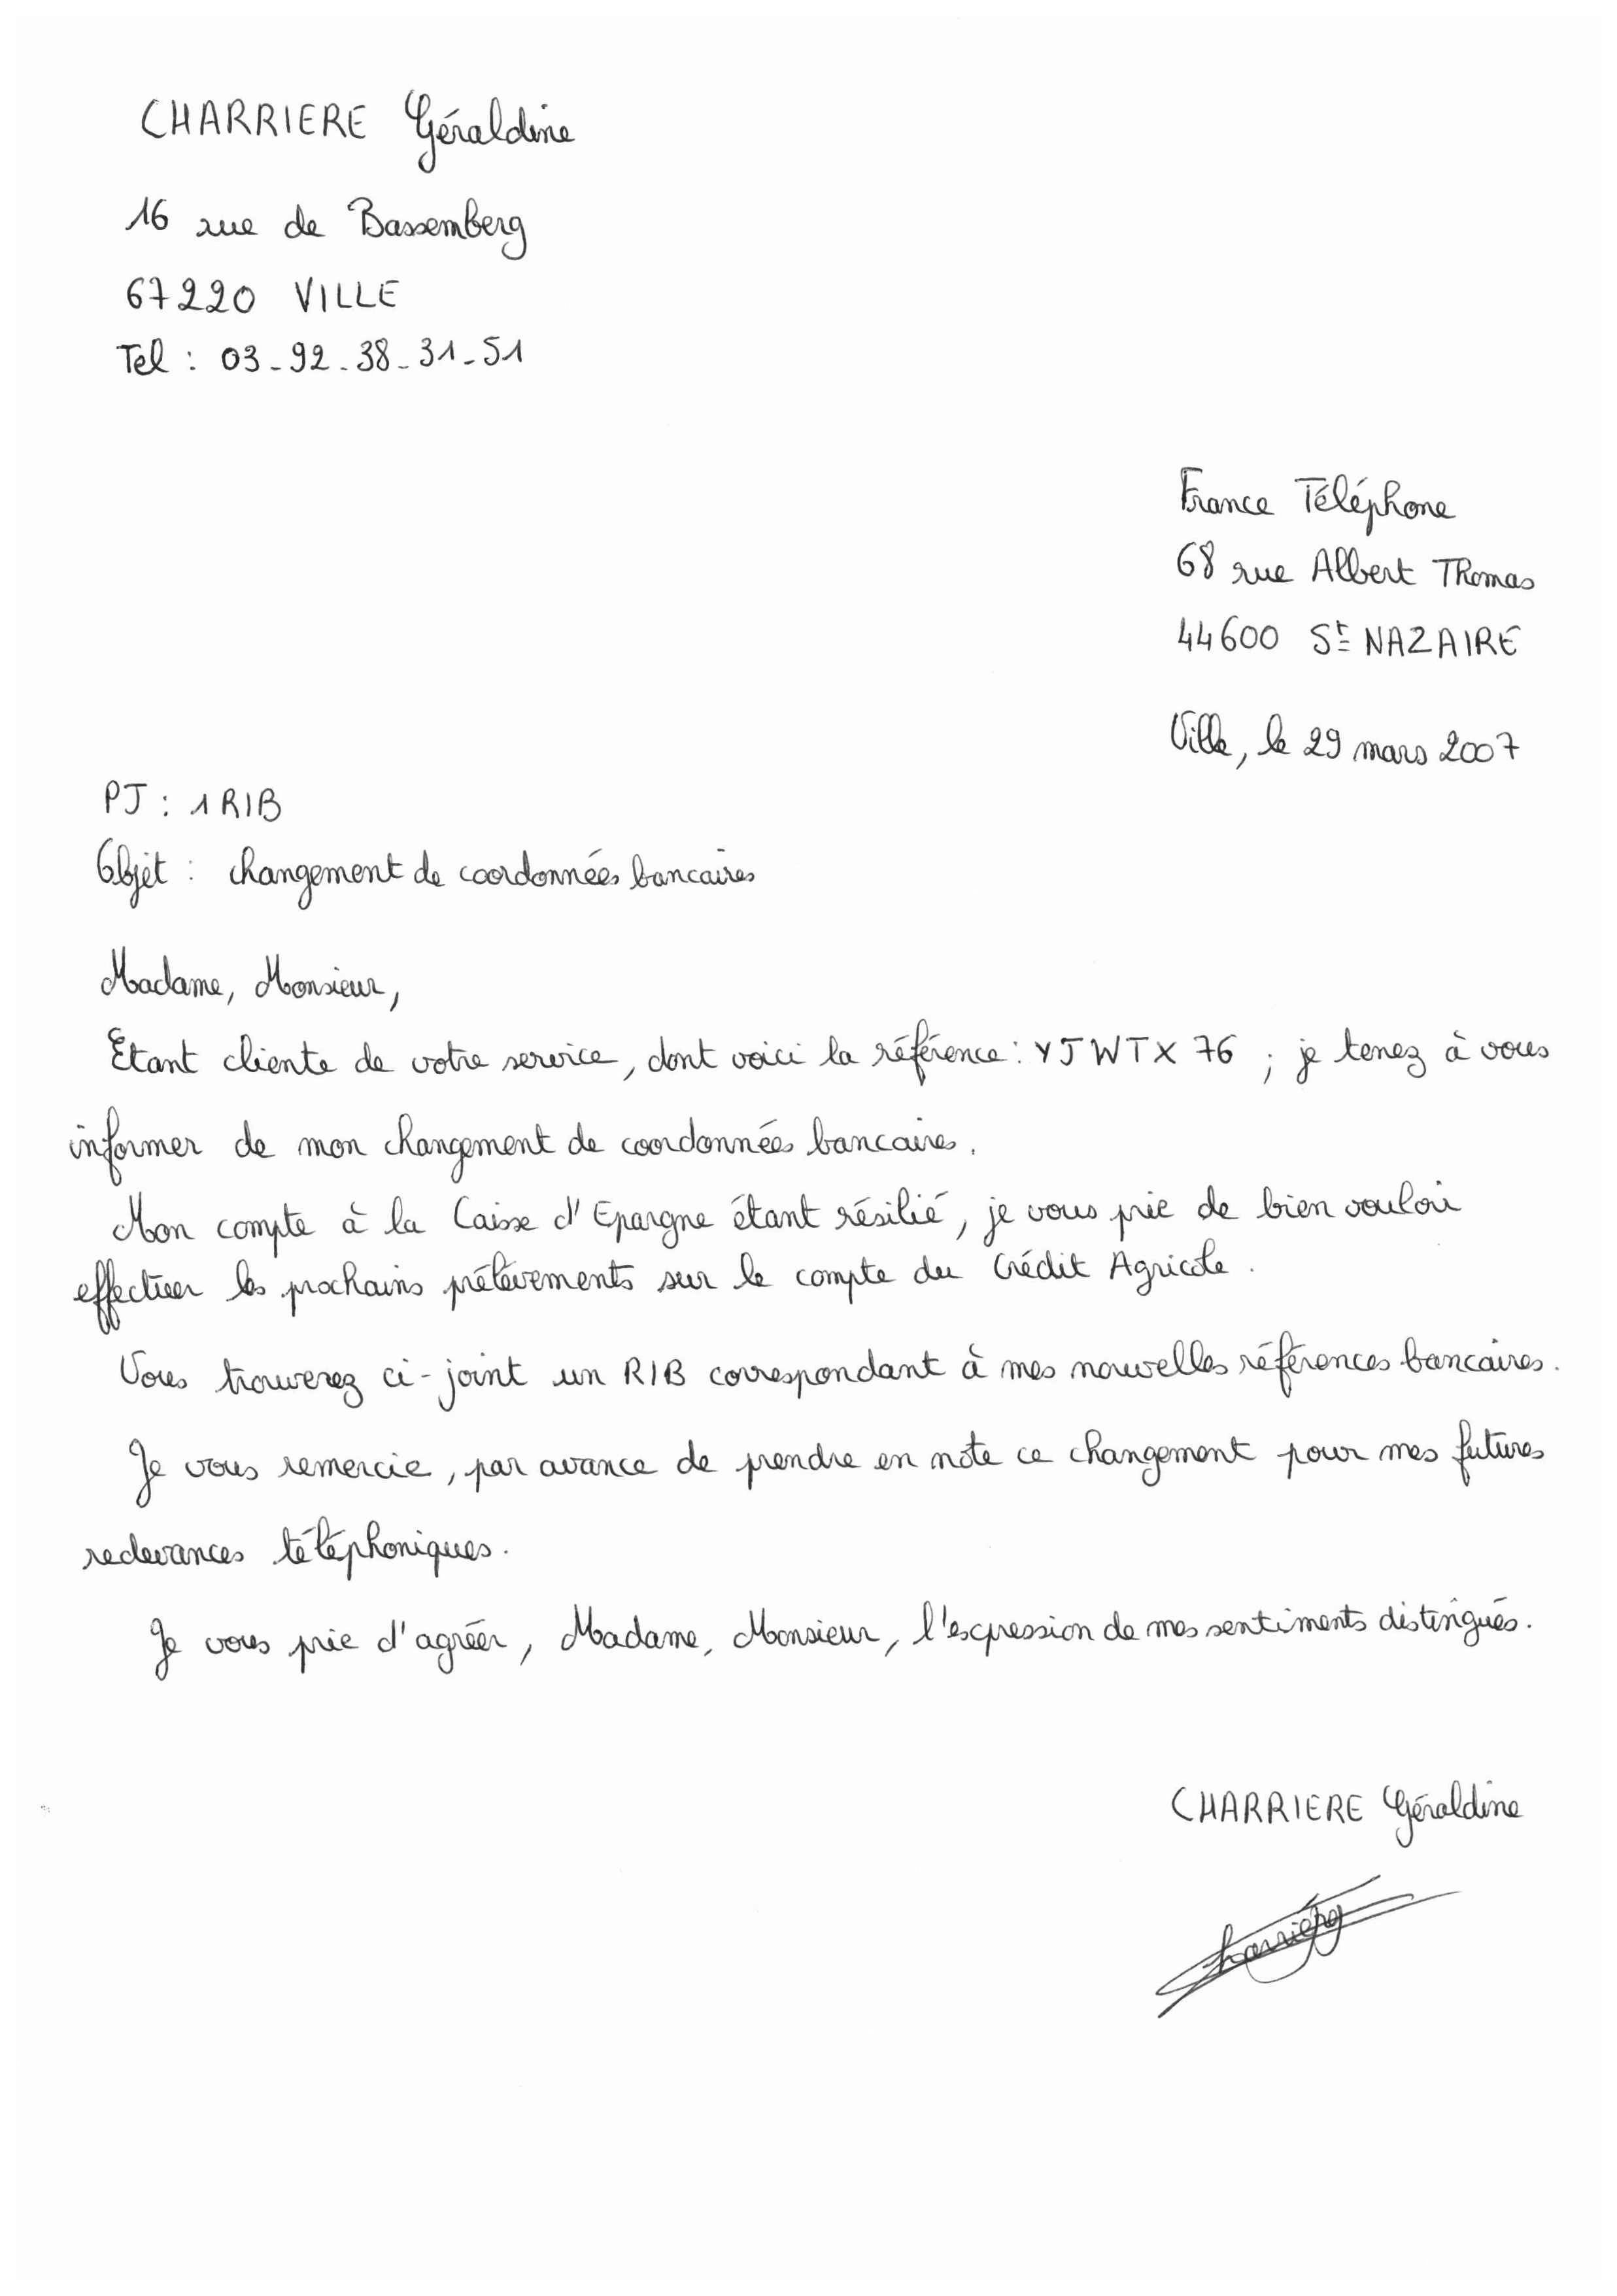 CHARRIERE Géraldine
16 rue de Bassemberg
67220 VILLE
Tel : 03-92-38-31-51
France Téléphone
68 rue Albert Thomas
44600 St NAZAIRE
Ville, le 29 mars 2007
PJ : 1 RIB
Objet : changement de coordonnées bancaires
Madame, Monsieur,
Etant cliente de votre service, dont voici la référence : YJWTX 76 ; je tenez à vous
informer de mon changement de coordonnées bancaires.
Mon compte à la Caisse d'Epargne étant résilié, je vous prie de bien vouloir
effectuer les prochains prélèvements sur le compte du Crédit Agricole.
Vous trouverez ci-joint un RIB correspondant à mes nouvelles références bancaires.
Je vous remercie, par avance de prendre en note ce changement pour mes futures
redevances téléphoniques.
Je vous prie d'agréer, Madame, Monsieur, l'expression de mes sentiments distingués.
CHARRIERE Géraldine